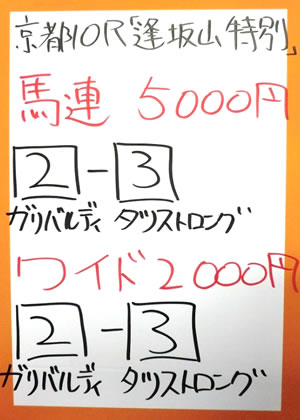 京都10R「逢坂山特別」
馬連 5000円
2-3
ガリバルディ タツストロング
ワイド2000円
2-3
ガリバルディ タツストロング